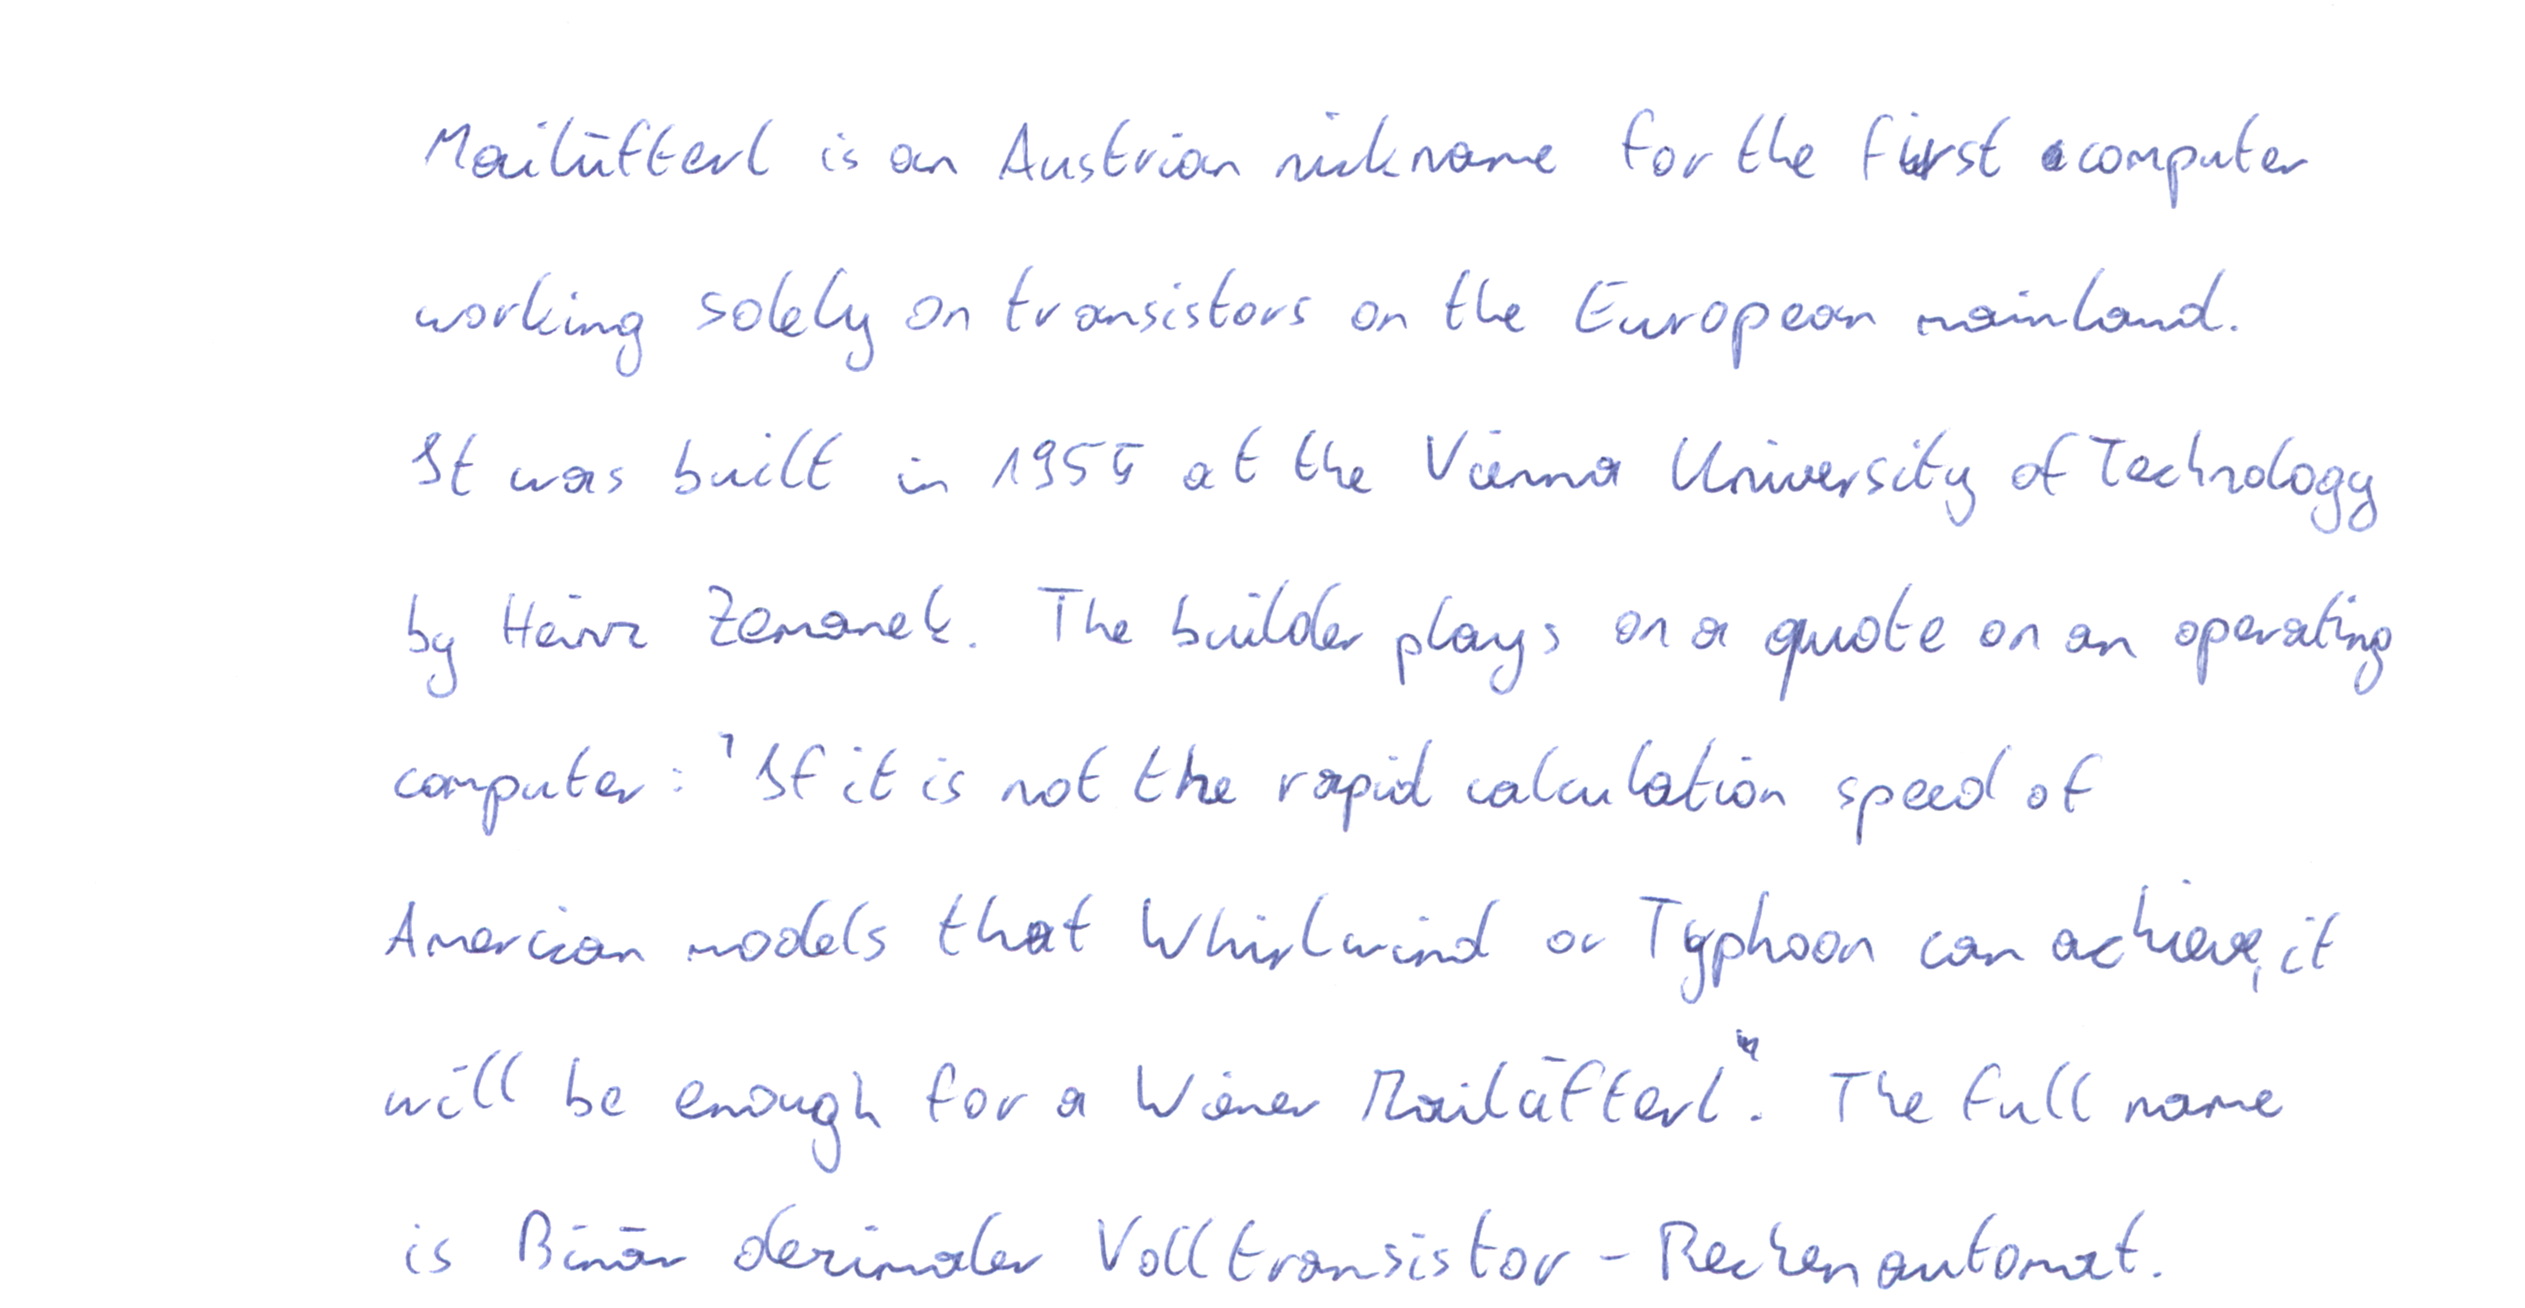 Mailüfterl is an Austrian nickname for the first computer
working solely on transistors on the European mainland.
It was built in 1955 at the Vienna University of Technology
by Heinz Zemanek. The builder plays on a quote on an operating
computer: "If it is not the rapid calculation speed of
Amercian models that Whirlwind or Typhoon can achieve, it
will be enough for a Wiener Mailüfterl". The full name
is Binär dezimaler Volltransistor-Rechenautomat.